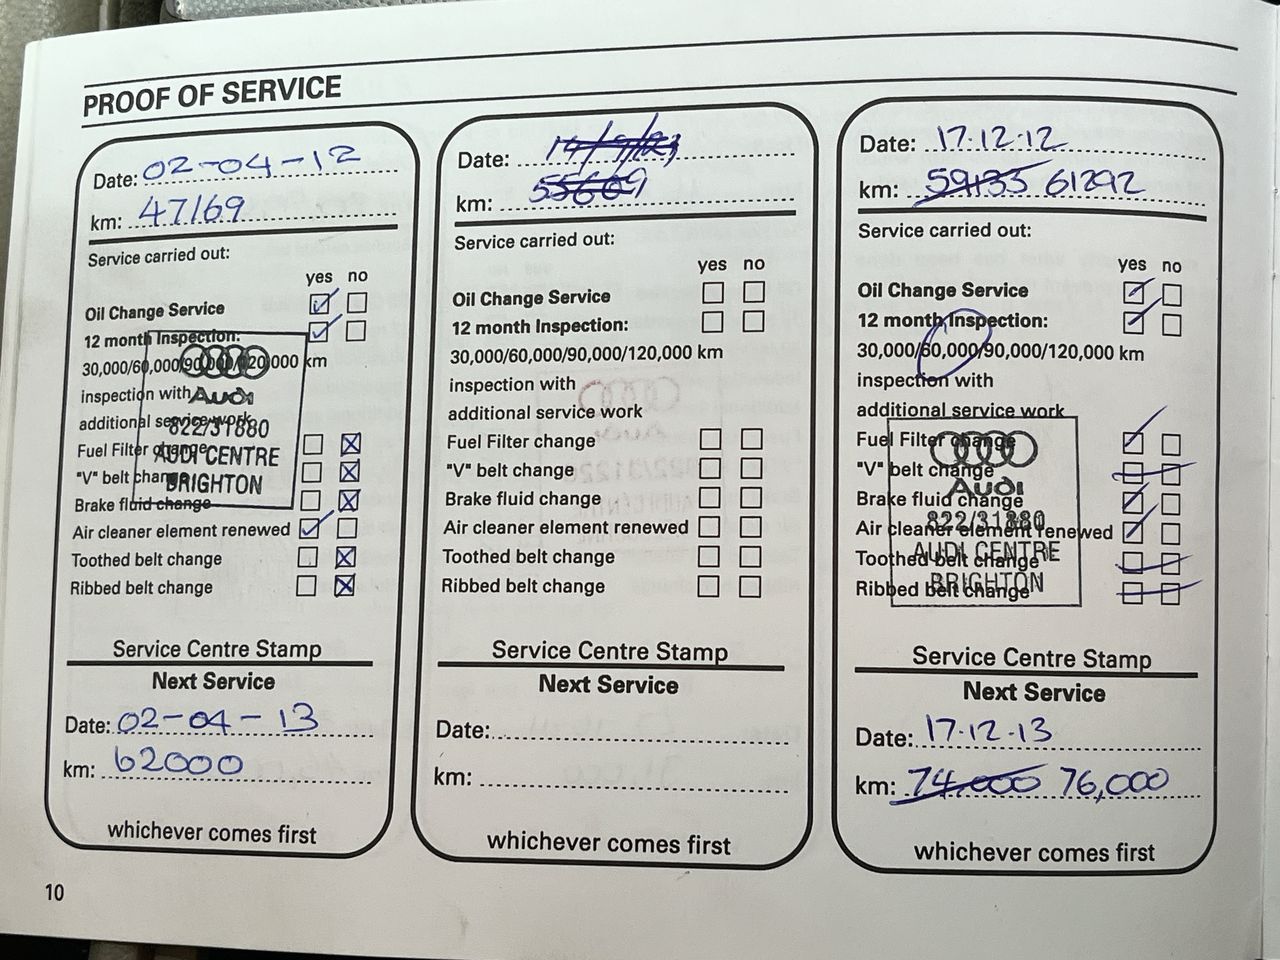 PROOF OF SERVICE
Date: 02-04-12
km: 47169
Service carried out:
yes no
Oil Change Service
12 month Inspection:
30,000/60,000/90,000/120,000 km
inspection with
additional service work
Fuel Filter change
"V" belt change
Brake fluid change
Air cleaner element renewed
Toothed belt change
Ribbed belt change
Audi
822/31880
AUDI CENTRE
BRIGHTON
Service Centre Stamp
Next Service
Date: 02-04-13
km: 62000
whichever comes first
10
Date:
km: 55609
Service carried out:
yes no
Oil Change Service
12 month Inspection:
30,000/60,000/90,000/120,000 km
inspection with
additional service work
Fuel Filter change
"V" belt change
Brake fluid change
Air cleaner element renewed
Toothed belt change
Ribbed belt change
Service Centre Stamp
Next Service
Date:
km:
whichever comes first
Date: 17.12.12
km: 59135 61292
Service carried out:
yes no
Oil Change Service
12 month Inspection:
30,000/60,000/90,000/120,000 km
inspection with
additional service work
Fuel Filter change
"V" belt change
Brake fluid change
Air cleaner element renewed
Toothed belt change
Ribbed belt change
Audi
822/31880
AUDI CENTRE
BRIGHTON
Service Centre Stamp
Next Service
Date: 17.12.13
km: 74,000 76,000
whichever comes first